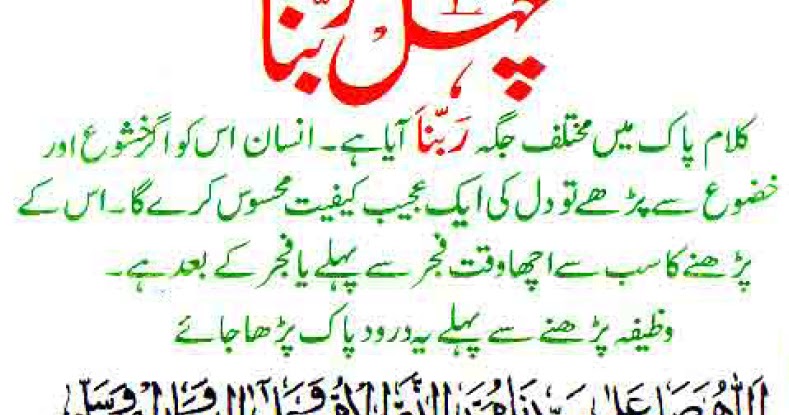 چہل ربنا
کلام پاک میں مختلف جگہ رَبَّنَا آیا ہے۔ انسان اس کو اگر خشوع اور
خضوع سے پڑھے تو دل کی ایک عجیب کیفیت محسوس کرے گا۔ اس کے
پڑھنے کا سب سے اچھا وقت فجر سے پہلے یا فجر کے بعد ہے۔
وظیفہ پڑھنے سے پہلے یہ درود پاک پڑھا جائے